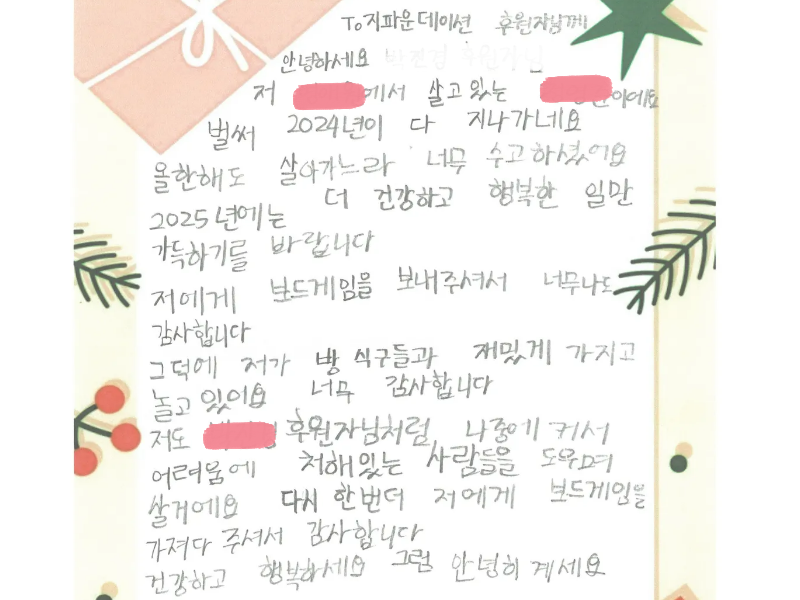 To 지파운데이션 후원자님께
안녕하세요
저 에서 살고 있는 이에요
벌써 2024년이 다 지나가네요
올한해도 살아가느라 너무 수고하셨어요
2025년에는 더 건강하고 행복한 일만
가득하기를 바랍니다
저에게 보드게임을 보내주셔서 너무나도
감사합니다
그덕에 저가 방 식구들과 재밌게 가지고
놀고 있어요 너무 감사합니다
저도 후원자님처럼 나중에 커서
어려움에 처해있는 사람들을 도우며
살거에요 다시 한번더 저에게 보드게임을
가져다 주셔서 감사합니다
건강하고 행복하세요 그럼 안녕히 계세요